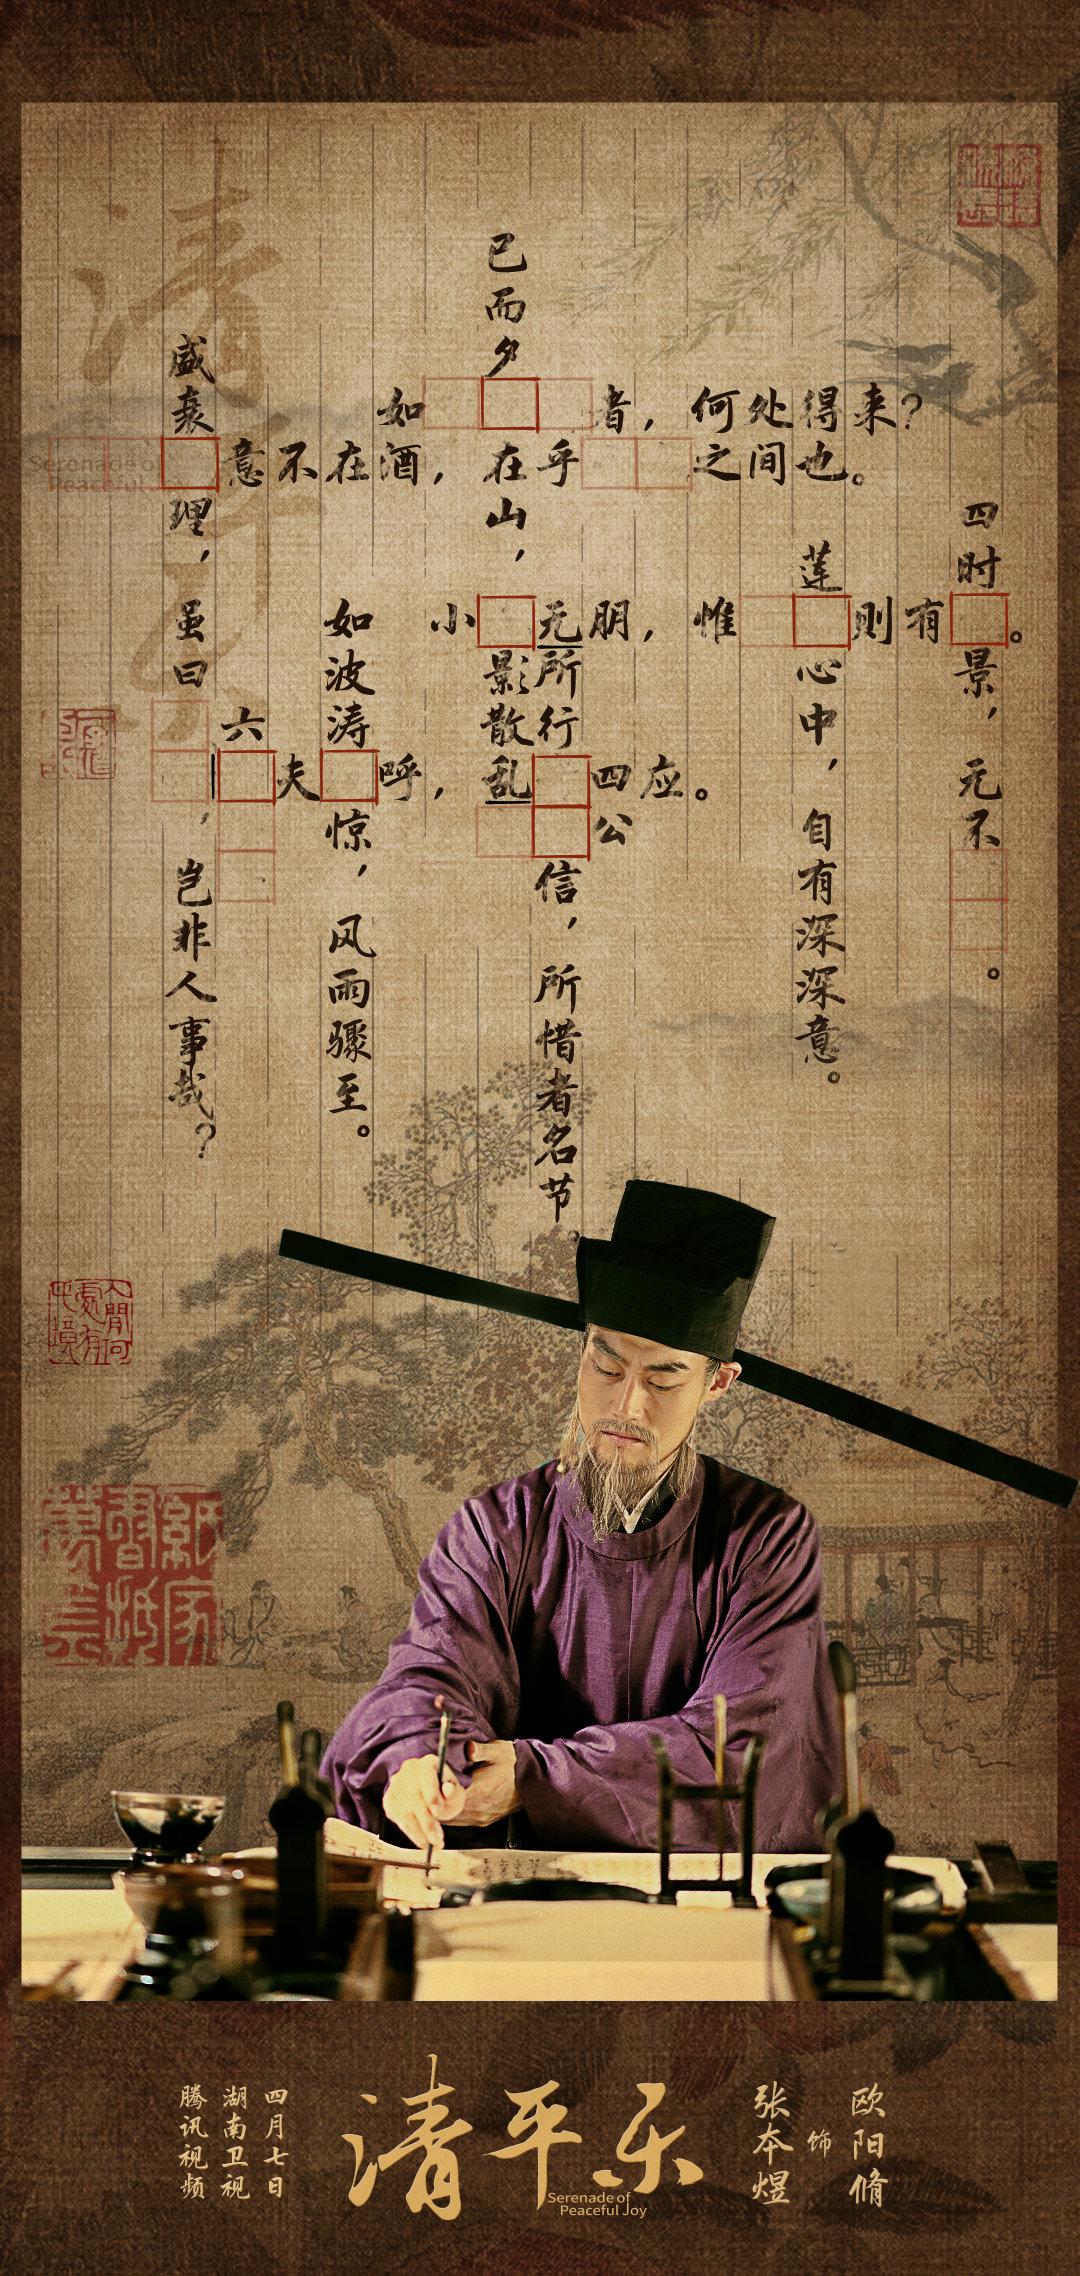 已而夕□在山，□影散乱
如□□□者，何处得来？
盛衰□理，虽曰□□，岂非人事哉？
□□□意不在酒，在乎□□之间也。
四时□景，无不□□。
莲□心中，自有深深意。
小□无朋，惟□□则有□。
如波涛□惊，风雨骤至。
无所行□□信，所惜者名节。
六□□□
□夫□呼，乱□四应。
□□公
清平乐
Serenade of
Peaceful J
四月七日
湖南卫视
腾讯视频
清平乐
Serenade of
Peaceful Joy
欧阳脩
饰
张本煜